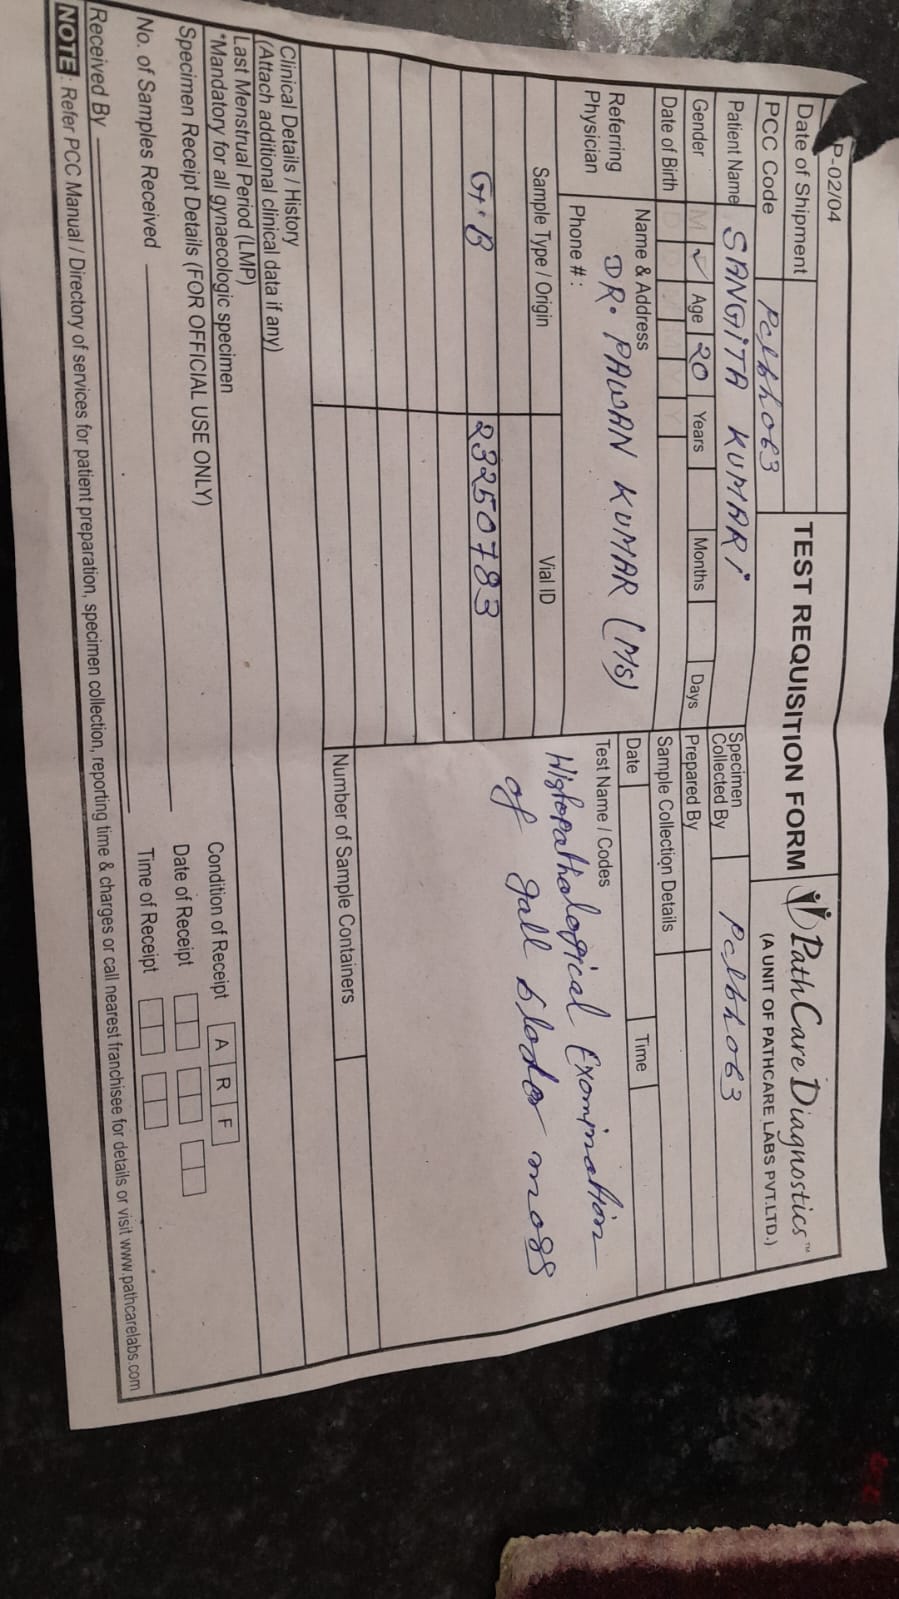 P-02/04
TEST REQUISITION FORM
PathCare Diagnostics™
(A UNIT OF PATHCARE LABS PVT.LTD.)
Date of Shipment
PCC Code Pclbh063
Patient Name SANGITA KUMARI
Specimen Collected By Pclbh063
Gender M ✓ Age 20 Years Months Days
Prepared By
Date of Birth
Sample Collection Details
Referring Physician
Name & Address DR. PAWAN KUMAR (MS)
Phone # :
Date Time
Test Name / Codes
Histopathological Examination
of gall blader mass
Sample Type / Origin Vial ID
G.B 23250783
Number of Sample Containers
Clinical Details / History
(Attach additional clinical data if any)
Last Menstrual Period (LMP)
*Mandatory for all gynaecologic specimen
Specimen Receipt Details (FOR OFFICIAL USE ONLY)
Condition of Receipt A R F
No. of Samples Received
Date of Receipt
Received By
Time of Receipt
NOTE : Refer PCC Manual / Directory of services for patient preparation, specimen collection, reporting time & charges or call nearest franchisee for details or visit www.pathcarelabs.com